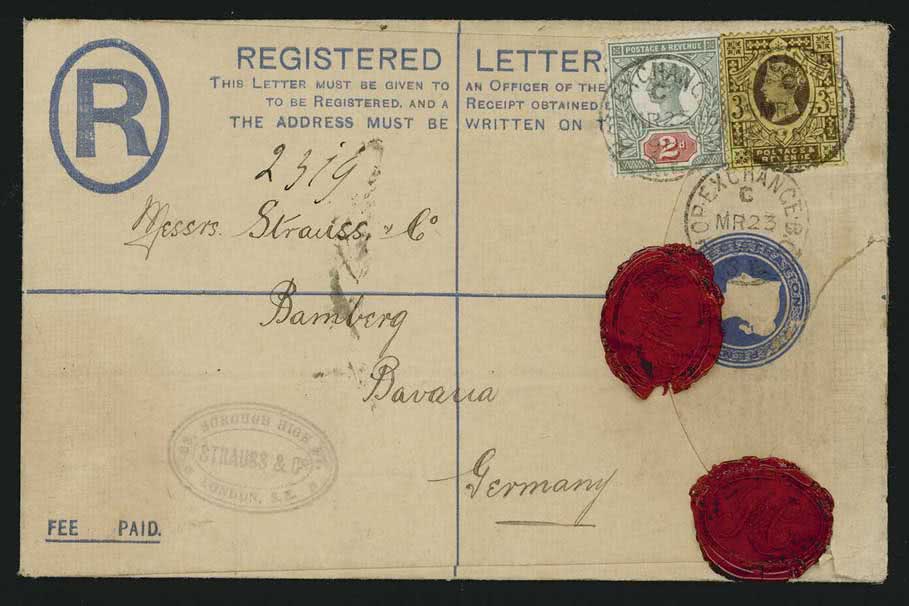 R
REGISTERED LETTER.
THIS LETTER MUST BE GIVEN TO AN OFFICER OF THE
TO BE REGISTERED, AND A RECEIPT OBTAINED
THE ADDRESS MUST BE WRITTEN ON
POSTAGE & REVENUE
2d
3d 3d
POSTAGE &
REVENUE
EXCHANGE
C
MR23
HOP-EXCHANGE-B.O
C
MR23
2319
Messrs. Strauss & Co
Bamberg
Bavaria
Germany
BOROUGH HIGH ST.
STRAUSS & Co
LONDON, S.E.
FEE PAID.